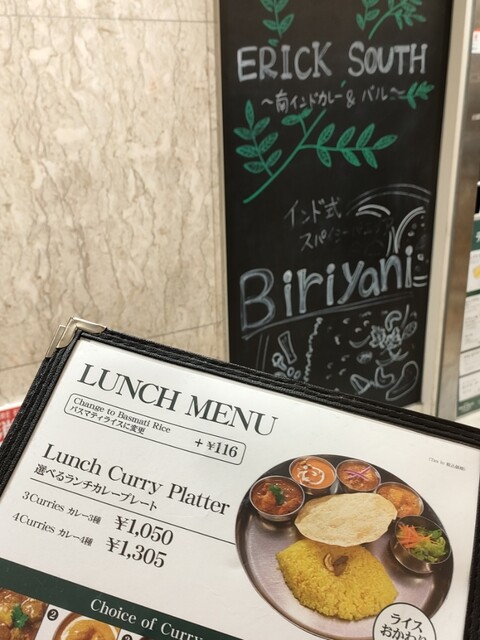 ERICK SOUTH
〜南インドカレー & バル〜
インド式
スパイシー
Biriyani
LUNCH MENU
Change to Basmati Rice
バスマティライスに変更
+ ¥116
Lunch Curry Platter
選べるランチカレープレート
3Curries カレー3種 ¥1,050
4Curries カレー4種 ¥1,305
ライス
おかわり
Choice of Curry
2